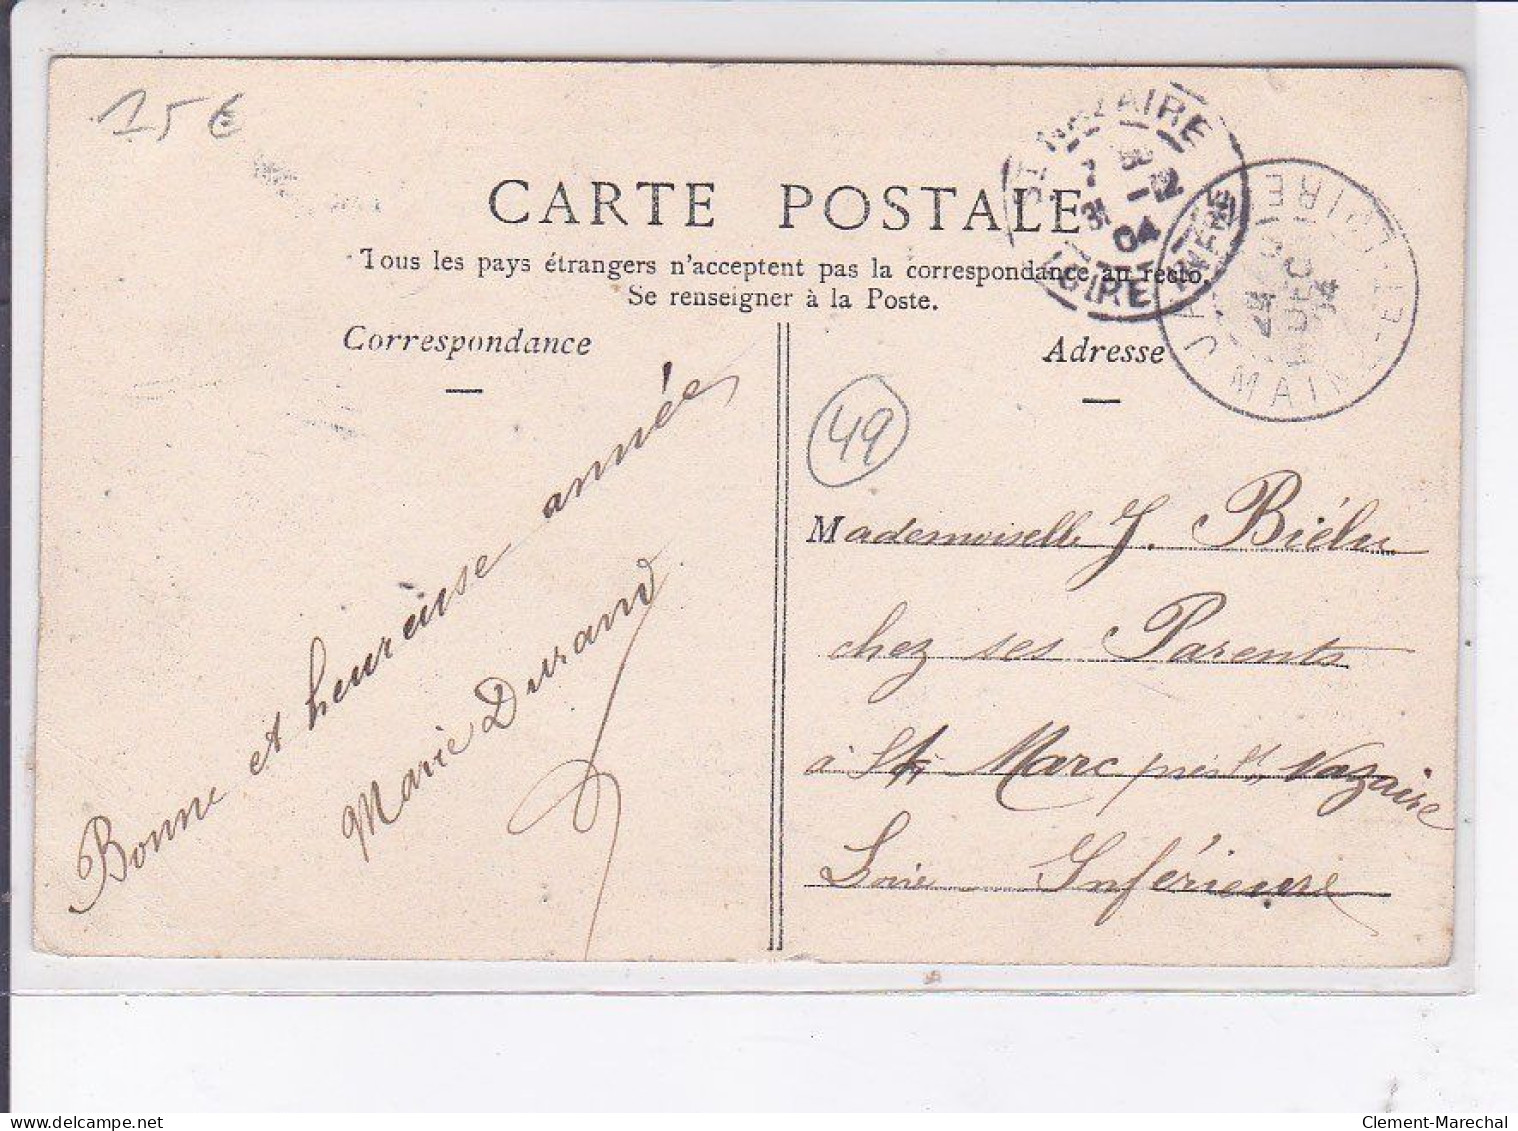 15 €
CARTE POSTALE
Tous les pays étrangers n'acceptent pas la correspondance au recto.
Se renseigner à la Poste.
Correspondance
Adresse
ST NAZAIRE
31 12
04
LOIRE INFRE
MAINE-ET-LOIRE
49
Bonne et heureuse année
Marie Durand
Mademoiselle J.
chez ses Parents
à St Marc près St Nazaire
Loire Inférieure
www.delcampe.net
Clement-Marechal